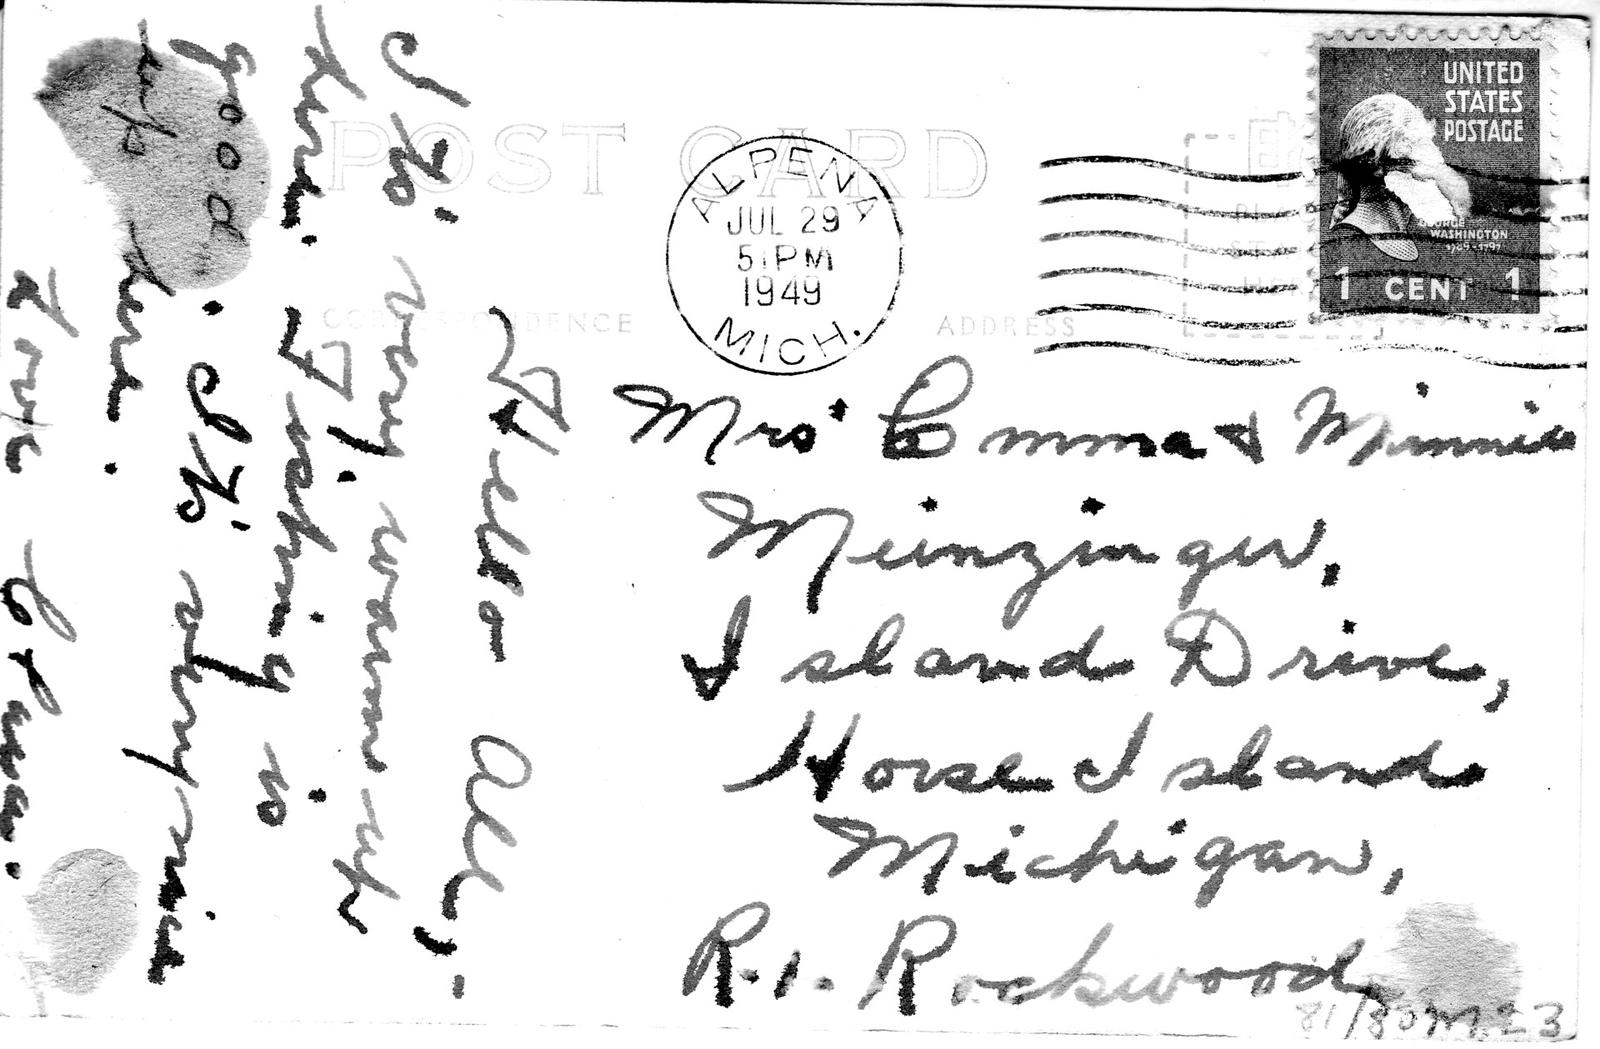 POST CARD
CORRESPONDENCE
ADDRESS
ALPENA
JUL 29
5 PM
1949
MICH.
UNITED
STATES
POSTAGE
GEORGE
WASHINGTON
1789-1797
1 CENT 1
Hello All,
It's very warm up
here. Fishing is
good here. It's very nice
up here.
Love
Mrs Emma & Minnie
Munzinger,
Island Drive,
Horse Island
Michigan,
R.1. Rockwood
81/80M.23